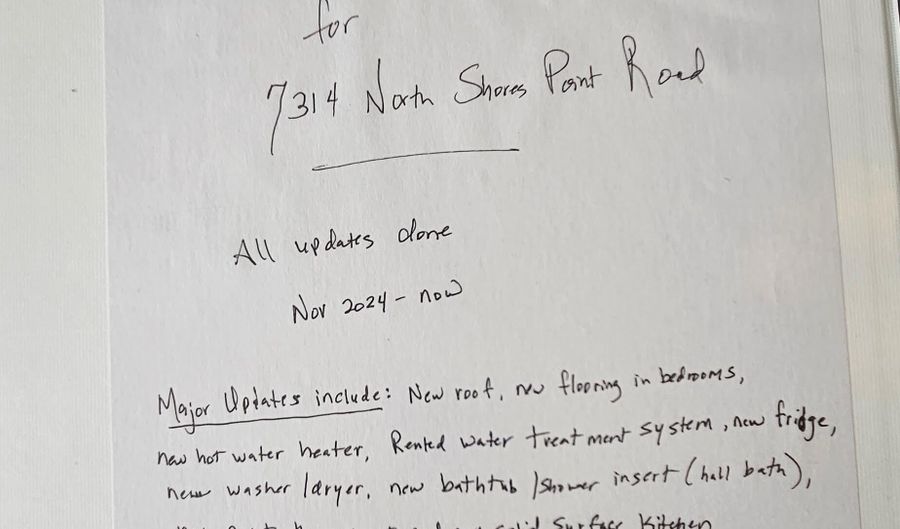 for
7314 North Shores Point Road
All updates done
Nov 2024 - now
Major Updates include: New roof, new flooring in bedrooms,
new hot water heater, Rented water treatment system, new fridge,
new washer/dryer, new bathtub/shower insert (hall bath),
solid surface kitchen